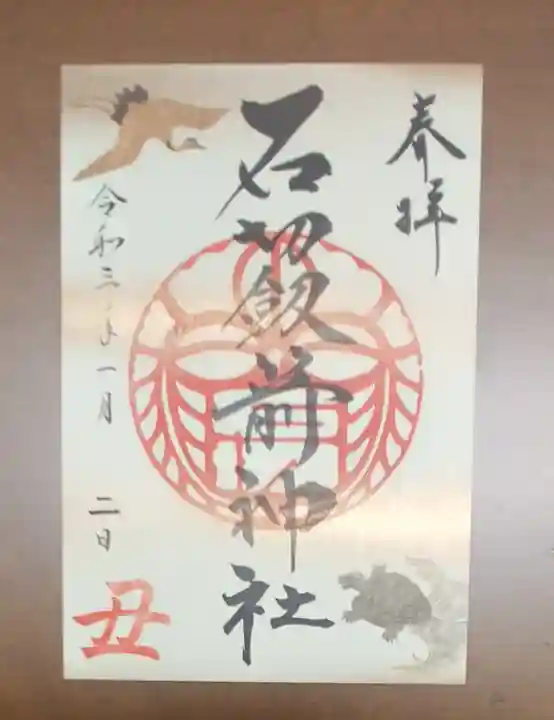 奉拝
石切劔箭神社
令和三年一月 二日
丑